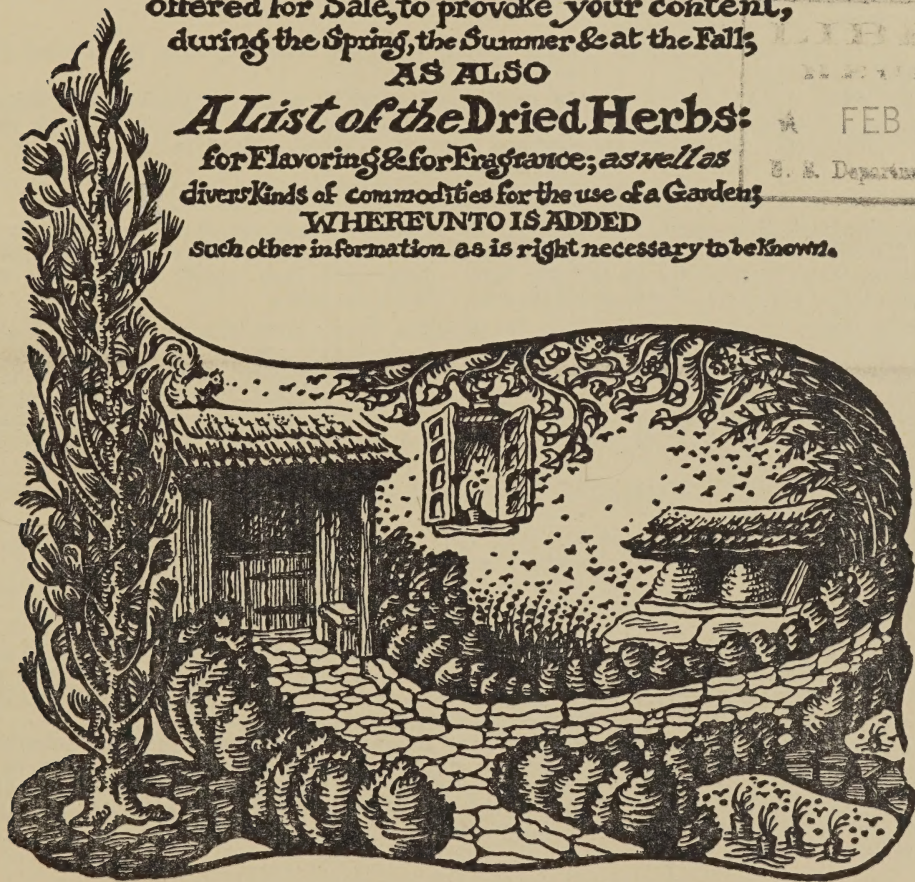 offered for Sale, to provoke your content,
during the Spring, the Summer & at the Fall;
AS ALSO
A List of the Dried Herbs:
for Flavoring & for Fragrance; as well as
divers Kinds of commodities for the use of a Garden;
WHEREUNTO IS ADDED
such other information as is right necessary to be known.
FEB